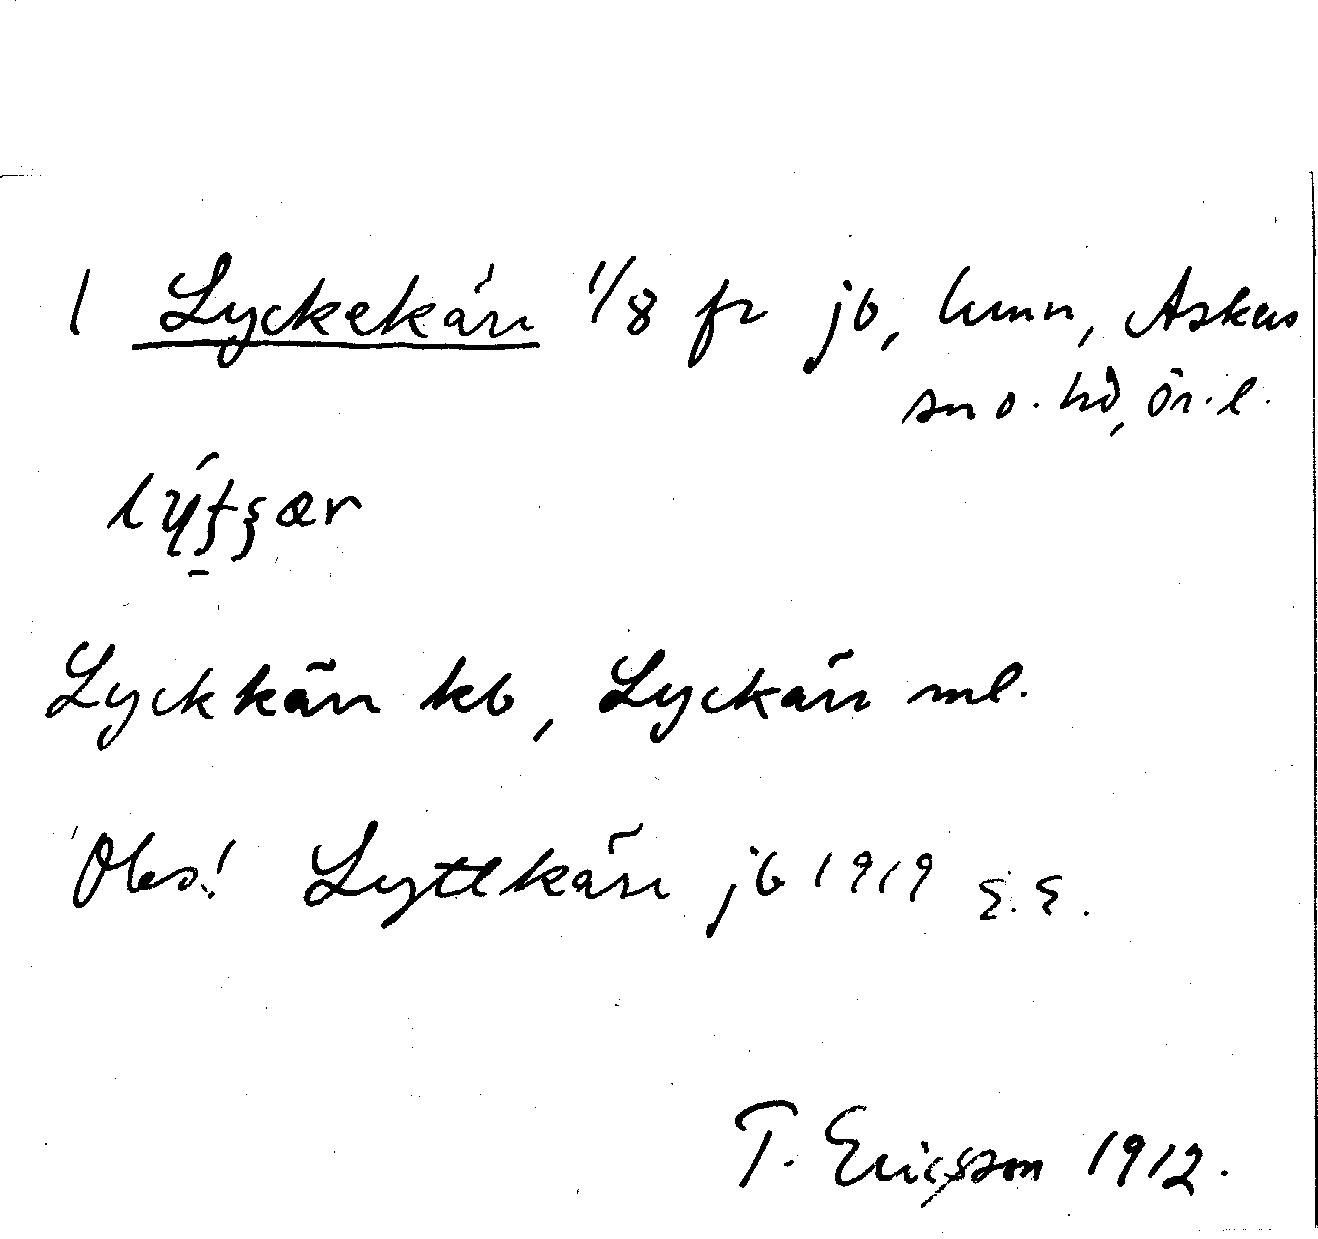 1 Lyckekärr 1/8 fr jb, hmn, Askers
sn o. hd, ör. l.
Lyckkärr kb, Lyckärr ml.
Obs! Lyttkärr jb 1919 
T. Ericsson 1912.